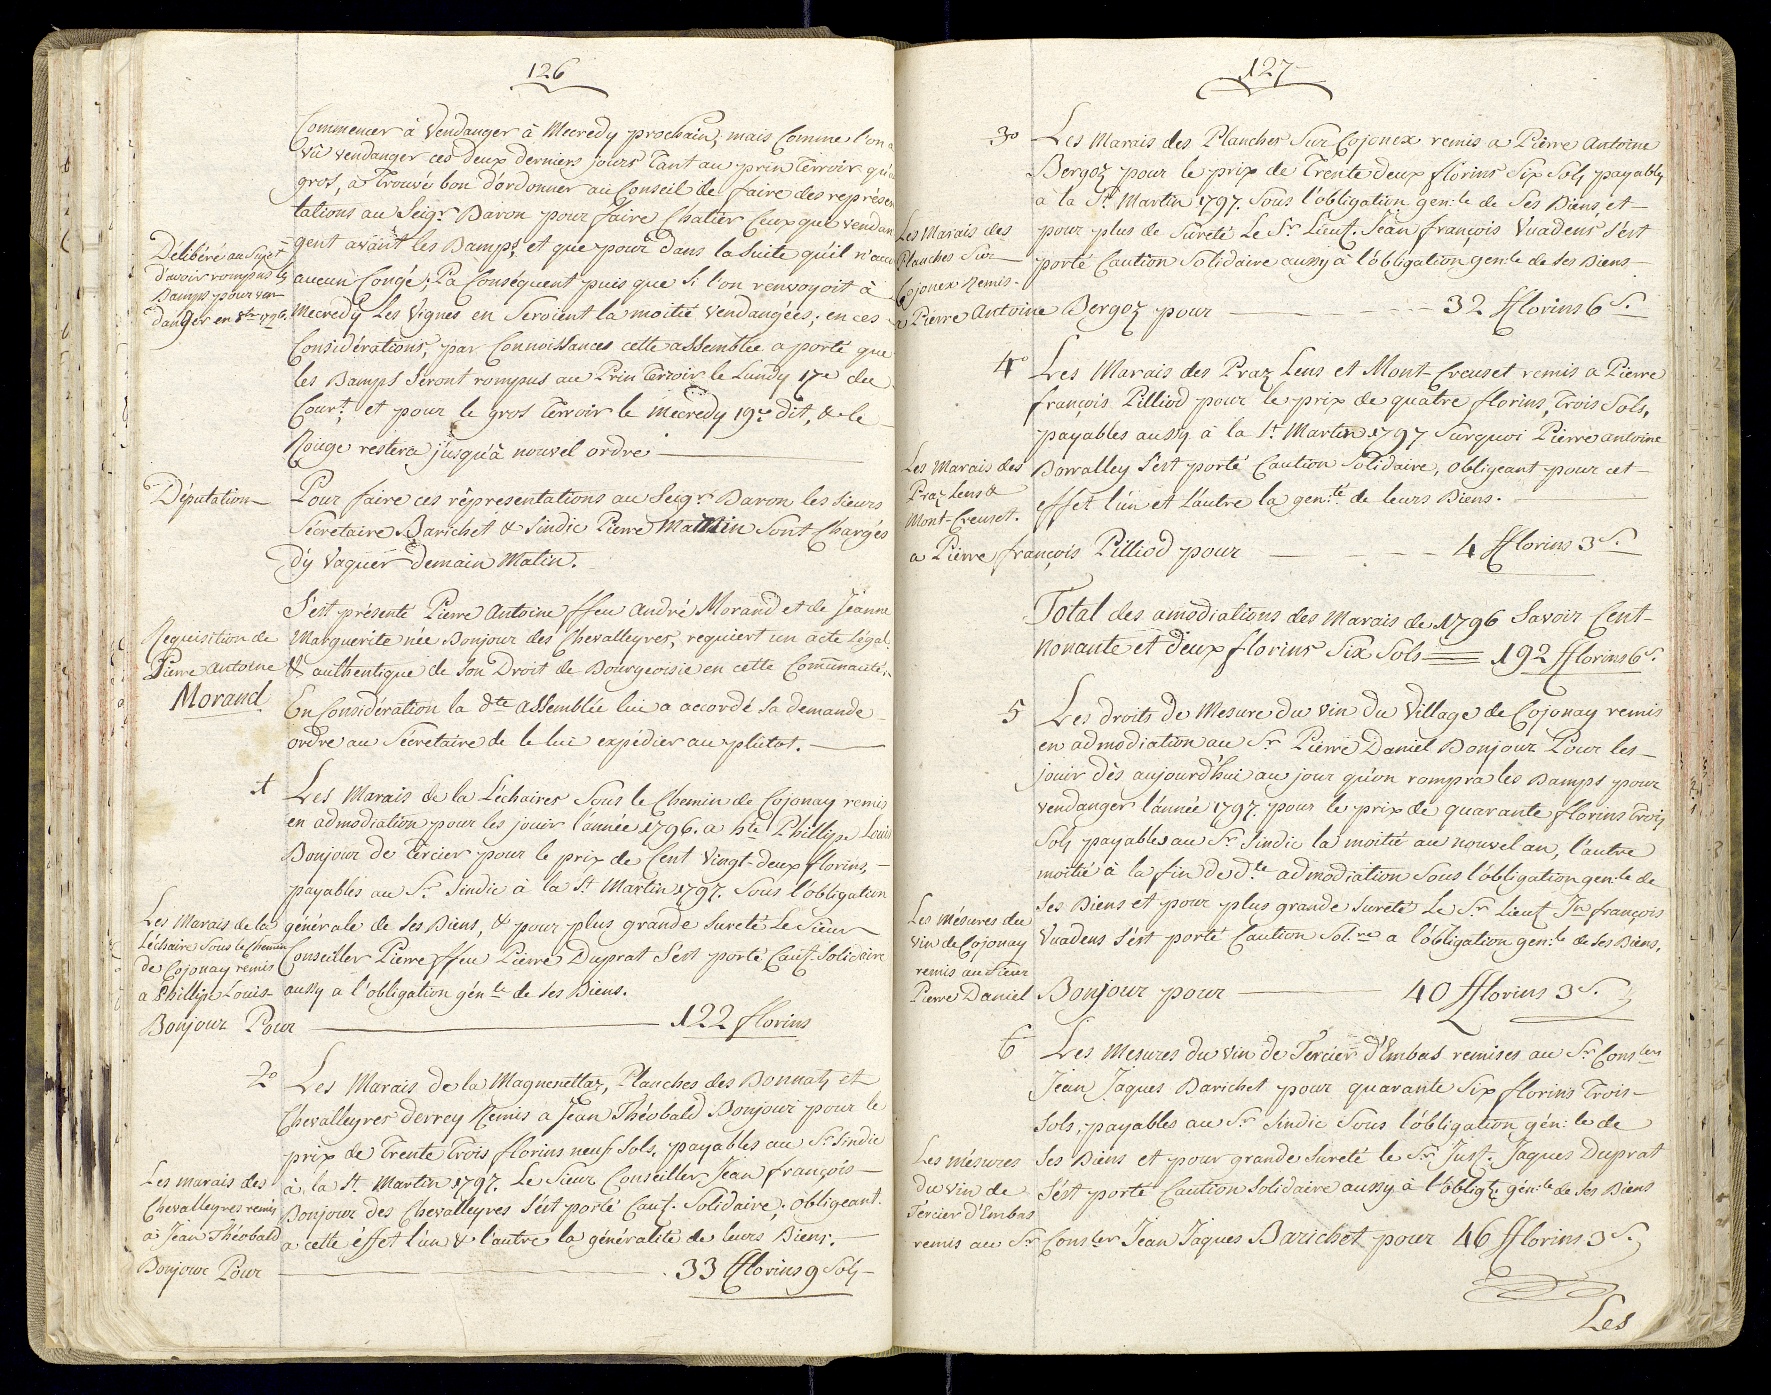 126
Commencer à Vendanger à Mecredy prochain, mais Comme l'on a
vû vendanger ces deux derniers jours tant au prin Terroir qu'au
gros, a Trouvé bon d'ordonner au Conseil de faire des représen
tations au Seigr. Baron pour faire Chatier Ceux que vendan
gent avant les Bamps, et que pour dans la Suite qu'il n'aura
Délibéré au Sujet
d'avoir rompus les
Bamps pour ven
danger en 8bre 1796.
aucun Congé; Pa Conséquent puis que Si l'on renvoyoit à
Mecredy Les Vignes en Seroient la moitié vendangées; en ces
Considérations, par Connoissances cette assemblée a porté que
les Bamps Seront rompus au Prin Terroir le Lundy 17e du
Court. et pour le gros Terroir le Mecredy 19e dit, & le
Rouge restera jusqu'à nouvel ordre
Députation
Pour faire ces répresentations au Seigr. Baron les Sieurs
Sécretaire Barichet & Sindic Pierre Mamin Sont Chargés
d'y Vaquer demain Matin.
S'est présenté Pierre Antoine ffeu André Morand et de Jeanne
Requisition de
Pierre Antoine
Morand
Marguerite née Bonjour des Chevalleyres, requiert un acte Légal
& authentique de Son Droit de Bourgeoisie en cette Communauté,
En Considération la dte assemblée lui a accordé Sa demande
ordre au Sécretaire de le lui expédier au plutot.
1
Les Marais de la Léchaires Sous le Chemin de Cojonay remis
en admodiation pour les jouir l'année 1796. a hte Phillipe Louis
Bonjour de Tercier pour le prix de Cent Vingt-deux florins,
payables au Sr. Sindic à la St. Martin 1797. Sous l'obligation
Les Marais de la
Léchaire Sous le Chemin
de Cojonay remis
a Phillipe Louis
générale de Ses Biens, & pour plus grande Sureté Le Sieur
Conseiller Pierre ffeu Pierre Duprat S'est porté Caut. Solidaire
aussy a l'obligation génle de ses Biens.
Bonjour Pour 122 florins
2o
Les Marais de la Magnenettaz, Planches des Bonnats et
Chevalleyres derrey Remis a Jean Théobald Bonjour pour le
prix de Trente Trois florins neuf Sols, payables au Sr. Sindic
à la St. Martin 1797. Le Sieur Conseiller Jean françois
Les marais des
Chevalleyres remis
à Jean Théobald
Bonjour des Chevalleyres S'est porté Caut. Solidaire, obligeant
a cette éffet l'un & l'autre la généralité de leurs Biens.
Bonjour Pour 33 fflorins 9 Sols
127
3o
Les Marais des Planches Sur Cojonex remis a Pierre Antoine
Bergoz pour le prix de Trente deux florins Six Sols payables
a la St. Martin 1797. Sous l'obligation gen:le de Ses Biens, et
Les Marais des
Planches Sur
Cojonex Remis
pour plus de Sureté Le Sr. Lieut. Jean françois Vuadens S'est
porté Caution Solidaire aussy à l'obligation gen:le de Ses Biens
a Pierre Antoine Bergoz pour 32 fflorins 6 S.
4o
Les Marais des Praz Lens et Mont-Creuset remis a Pierre
françois Pilliod pour le prix de quatre florins, Trois Sols,
payables aussy à la St. Martin 1797 Surquoi Pierre antoine
Les Marais des
Praz Lens &
Mont-Creuset.
Dorvalley S'est porté Caution Solidaire, obligeant pour cet
effet l'un et L'autre la gen:té de leurs Biens.
a Pierre françois Pilliod pour 4 fflorins 3 S.
Total des amodiations des Marais de 1796 Savoir Cent
nonante et deux florins Six Sols 192 fflorins 6 S.
5
Les droits de Mesure du vin du Village de Cojonay remis
en admodiation au Sr. Pierre Daniel Bonjour Pour les
jouir dès aujourd'hui au jour qu'on rompra les Bamps pour
vendanger l'année 1797. pour le prix de quarante florins trois
Sols payables au Sr. Sindic la moitié au nouvel an, l'autre
moitié à la fin de dte admodiation Sous l'obligation gen:le de
Les mésures du
vin de Cojonay
remis au Sieur
Ses Biens et pour plus grande Sureté Le Sr. Lieut. Jn françois
Vuadens S'est porté Caution Sol:re a l'obligation gen:le de Ses Biens.
Pierre Daniel Bonjour pour 40 fflorins 3 S.
6
Les Mesures du vin de Tercier d'Embas remises au Sr. Consler
Jean Jaques Barichet pour quarante Six florins Trois
Sols, payables au Sr. Sindic Sous l'obligation gén:le de
Les mésures
du vin de
Tercier d'Embas
Ses Biens et pour grande Sureté le Sr. Just. Jaques Duprat
S'est porté Caution Solidaire aussy à l'obligt: gén:le de Ses Biens
remis au Sr. Consler Jean Jaques Barichet pour 46 fflorins 3 S.
Les